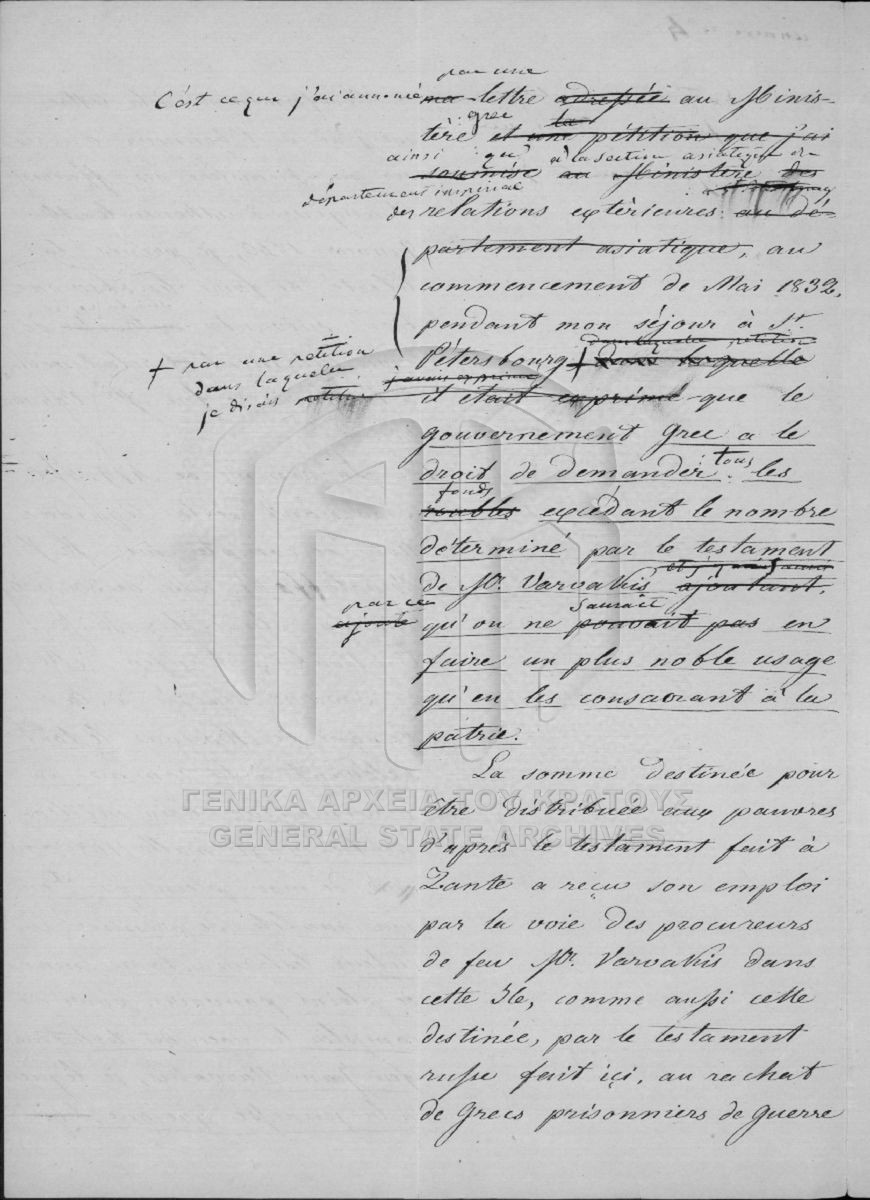 par une
C'est ce que j'ai annoncé ma lettre adressée au Minis-
grec la
tère et une pétition que j'ai
ainsi qu' à la section asiatique
soumise au Ministère des
département impérial
des relations extérieures au dé-
partement asiatique, au
commencement de Mai 1832,
pendant mon séjour à St.
Pétersbourg + dans laquelle
+ par une petition
dans laquelle
je disais
j'avais exprimé
il était exprimé que le
gouvernement Grec a le
droit de demander tous les
fonds
roubles excédant le nombre
déterminé par le testament
de Mr. Varvakis ajoutant,
par ce saurait
ajouté qu'on ne pouvait pas en
faire un plus noble usage
qu'en les consacrant à la
patrie.
La somme destinée pour
être distribuée aux pauvres
d'après le testament fait à
Zante a reçu son emploi
par la voie des procureurs
de feu Mr. Varvakis dans
cette Ile, comme aussi cette
destinée, par le testament
russe fait içi, au rachat
de Grecs prisonniers de guerre
ΓΕΝΙΚΑ ΑΡΧΕΙΑ ΤΟΥ ΚΡΑΤΟΥΣ
GENERAL STATE ARCHIVES